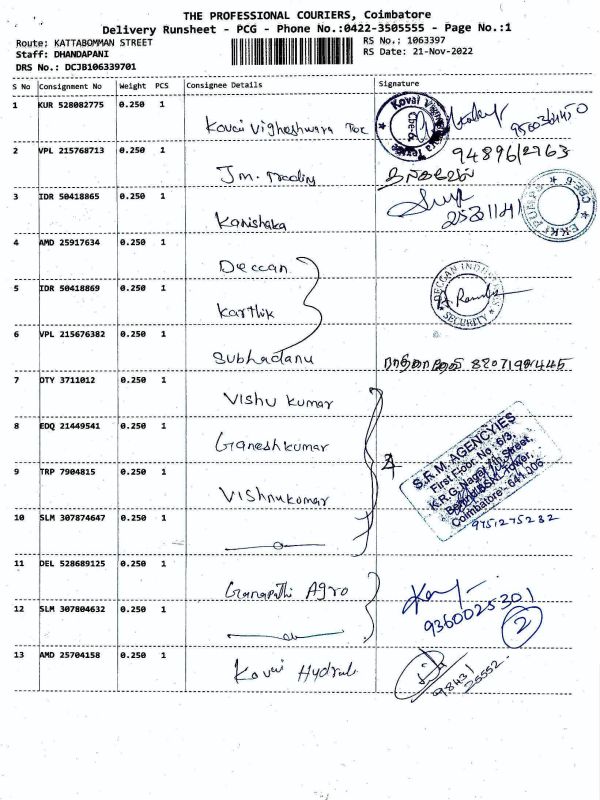 THE PROFESSIONAL COURIERS, Coimbatore
Delivery Runsheet - PCG - Phone No.:0422-3505555 - Page No.:1
Route: KATTABOMMAN STREET
Staff: DHANDAPANI
DRS No.: DCJB106339701
RS No.: 1063397
RS Date: 21-Nov-2022
S No Consignment No Weight PCS Consignee Details Signature
1 KUR 528082775 0.250 1
Kovai Vigheshwara Tex
2 VPL 215768713 0.250 1
Jm. Trading
3 IDR 50418865 0.250 1
Kanishaka
EKKI PUMPS
4 AMD 25917634 0.250 1
Deccan
DECCAN INDUSTRIES
SECURITY
5 IDR 50418869 0.250 1
Karthik
6 VPL 215676382 0.250 1
Subhadanu
7 DTY 3711012 0.250 1
Vishu Kumar
8 EDQ 21449541 0.250 1
Ganeshkumar
9 TRP 7904815 0.250 1
Vishnukumar
S.R.M. AGENCYIES
First Floor, No : 6/3,
K.R.G. Nagar 7th Street,
Coimbatore - 641 006.
9751275232
10 SLM 307874647 0.250 1
11 DEL 528689125 0.250 1
Ganapathi Agro
9360025301
2
12 SLM 307804632 0.250 1
13 AMD 25704158 0.250 1
Kovai
98431
25552